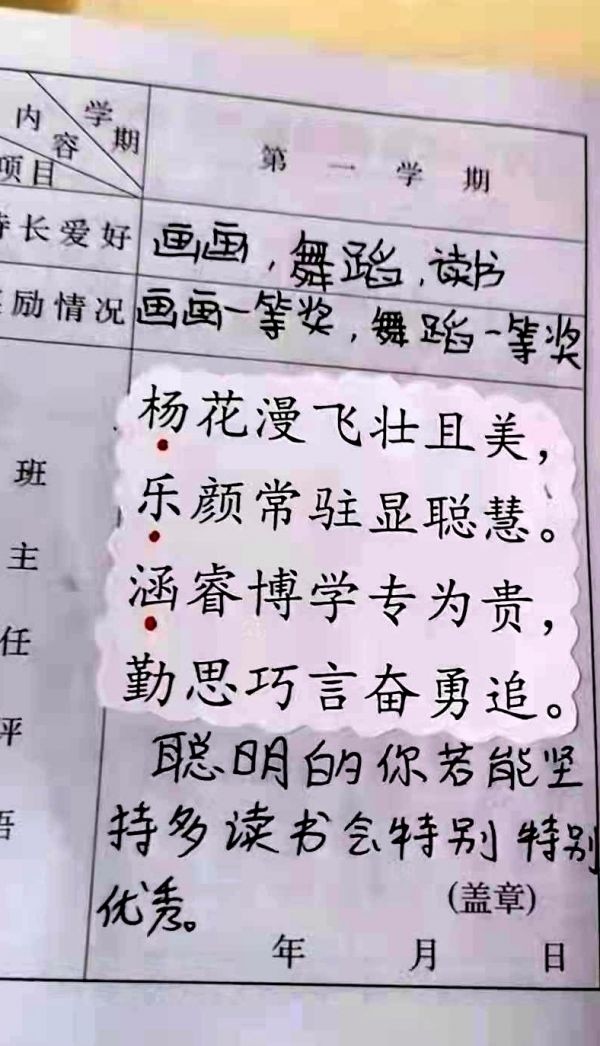 学期
内容
项目
第一学期
特长爱好
画画，舞蹈，读书
奖励情况
画画一等奖，舞蹈一等奖
班主任评语
杨花漫飞壮且美，
乐颜常驻显聪慧。
涵睿博学专为贵，
勤思巧言奋勇追。
聪明的你若能坚
持多读书会特别特别
优秀。
(盖章)
年 月 日